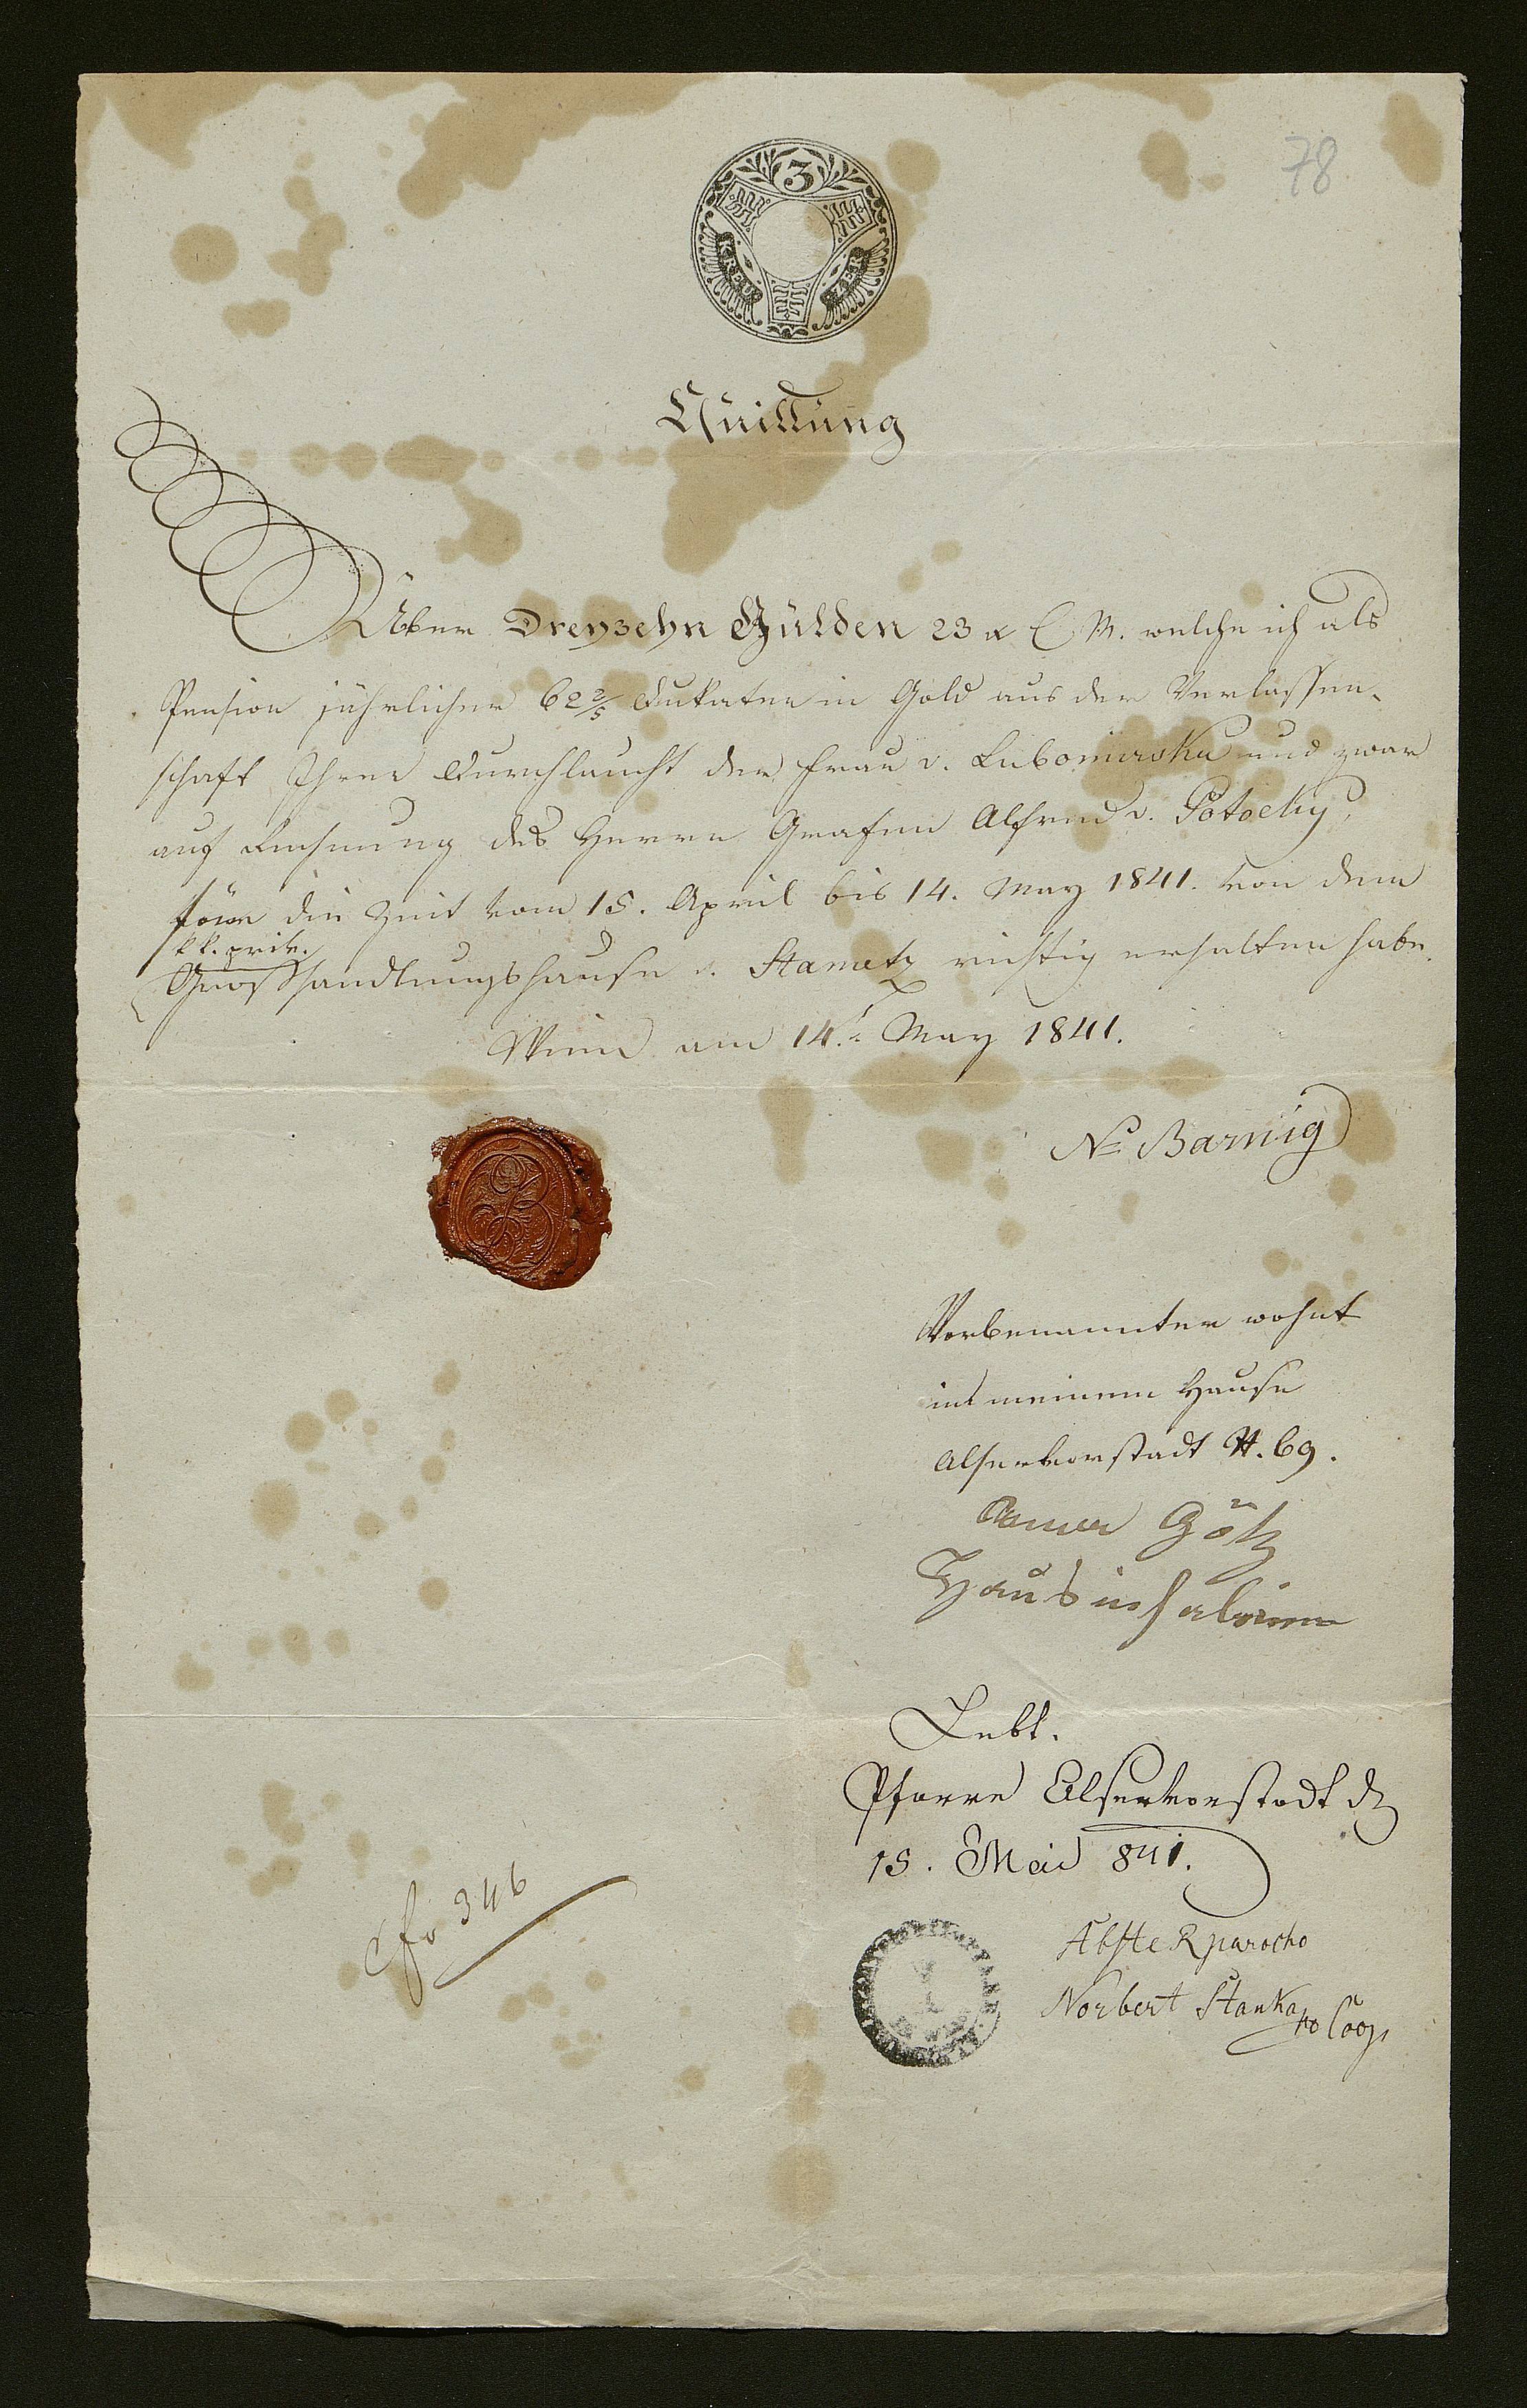 78
3
KREU ZER
Quittung
Über Dreyzehn Gulden 23 x C. M. welche ich als
Pension jährlicher 62 2/5 Dukaten in Gold aus der Verlassen-
schaft Ihrer Durchlaucht der Frau v. Lubomirska und zwar
auf Rechnung des Herrn Grafen Alfred v. Potocky,
für die Zeit vom 15. April bis 14. May 1841. von dem
k. k. priv.
Großhandlungshause v. Stametz richtig erhalten habe.
Wien am 14. May 1841.
Barnig
Vorbenannter wohnt
in meinem Hause
Alservorstadt N. 69.
Anna Götz
Hausinhaberin
Lebt.
Pfarre Alservorstadt d
15. Mai 841.
Abste R parocho
Norbert Stanka Coop
fo 346